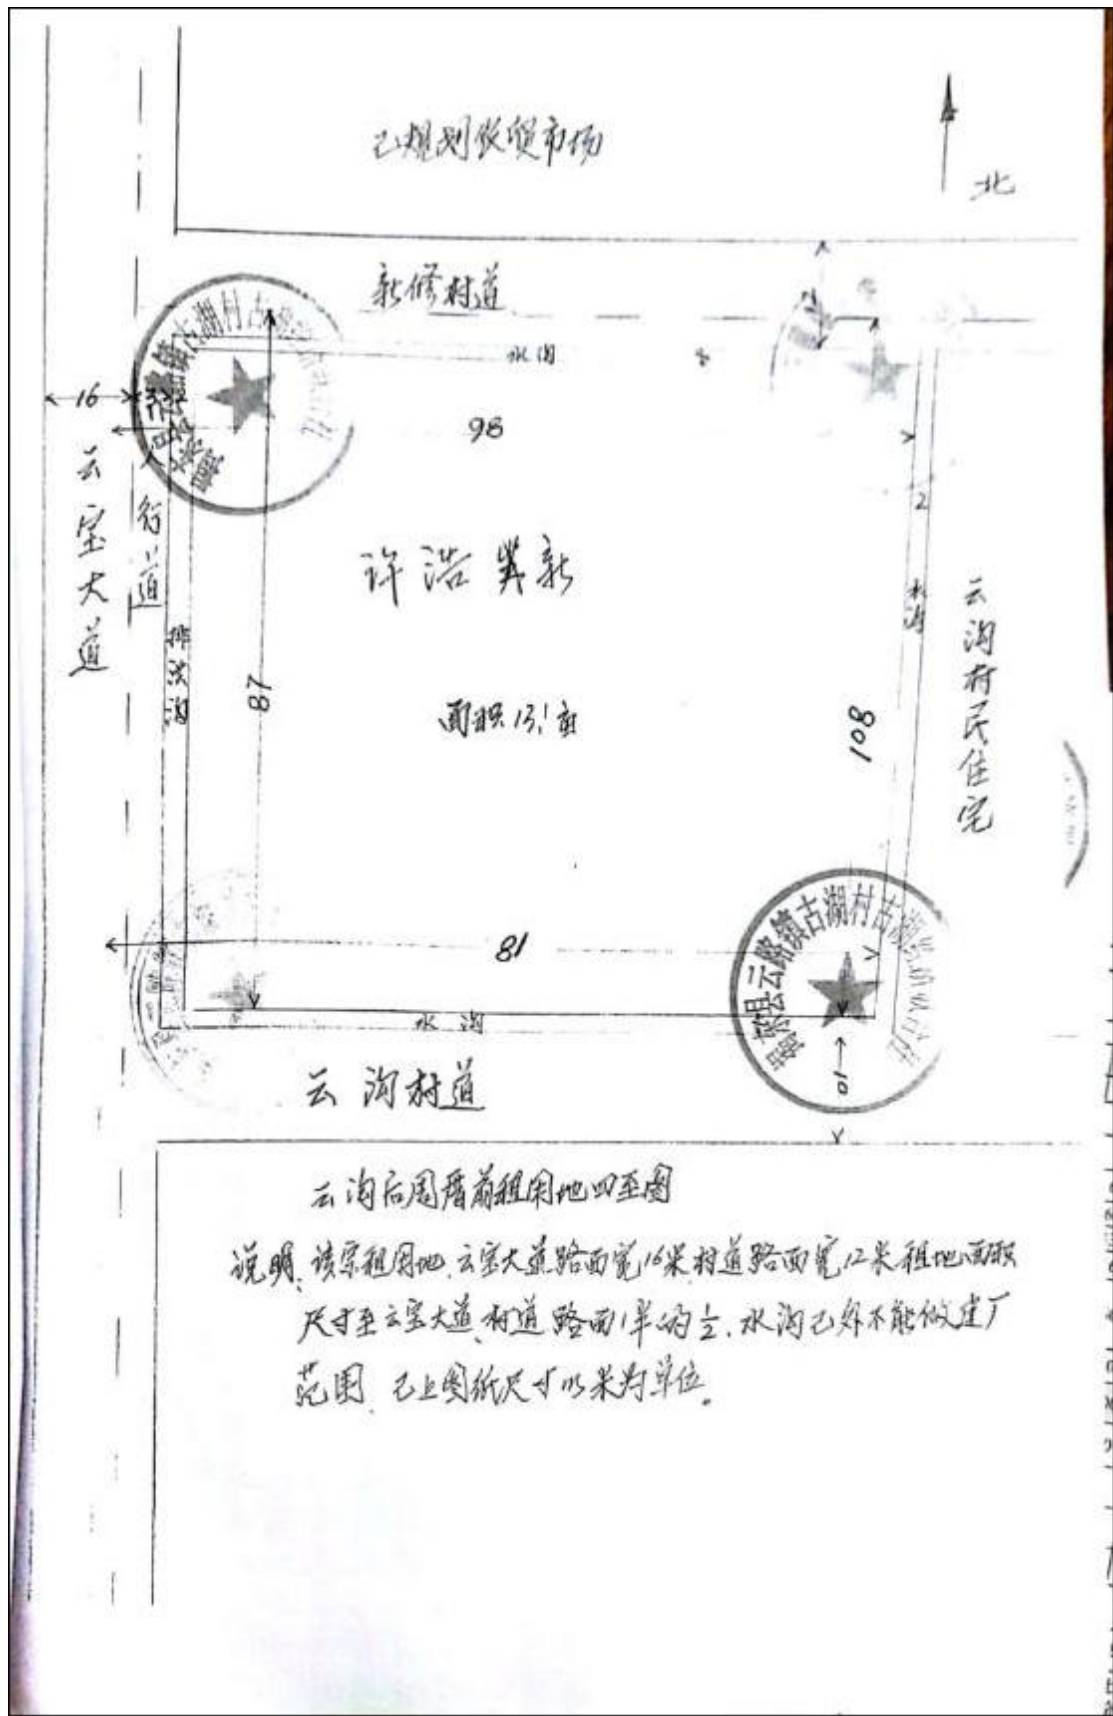 已规划农贸市场
北
新修村道
水沟
16
98
云宝大道
人行道
排洪沟
许浩冀新
面积13.1亩
87
108
2
水沟
云沟村民住宅
81
水沟
揭东县云路镇古湖村古湖
10
云沟村道
云沟后周厝前租用地四至图
说明、该宗租用地、云宝大道路面宽16米村道路面宽12米租地面积
尺寸至云宝大道、村道路面1半的立、水沟已外不能做建厂
范围、已上图纸尺寸以米为单位。